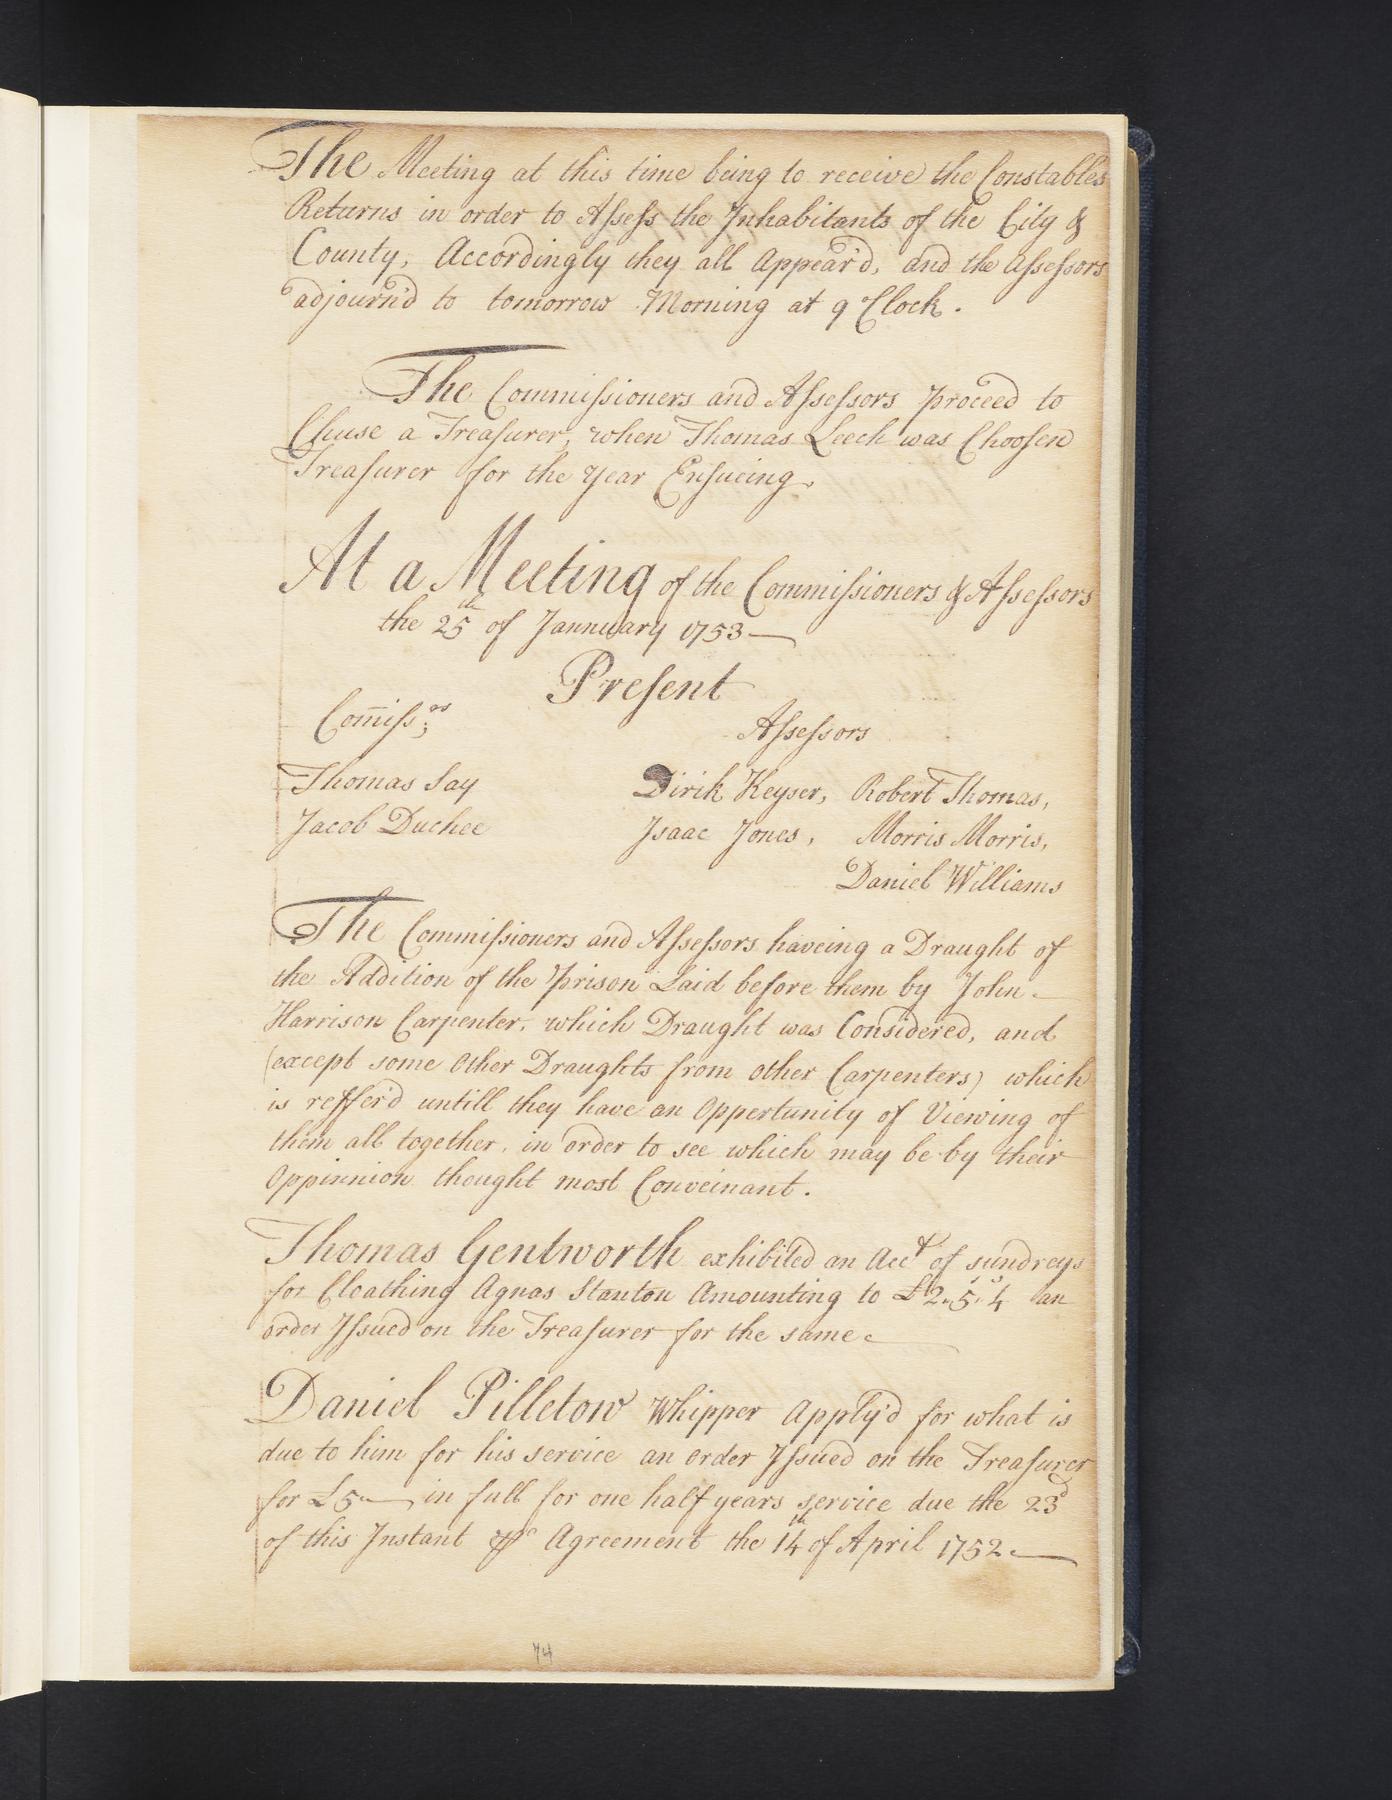 The Meeting at this time being to receive the Constables
Returns in order to Assess the Inhabitants of the City &
County, Accordingly they all Appear'd, and the Assessors
adjourn'd to tomorrow Morning at 9 Clock.
The Commissioners and Assessors proceed to
Chuse a Treasurer, when Thomas Leech was Choosen
Treasurer for the year Ensueing.
At a Meeting of the Commissioners & Assessors
the 25th of Jannuary 1753
Present
Comiss:rs
Assessors
Thomas Say
Dirik Keyser, Robert Thomas,
Jacob Duchee
Isaac Jones, Morris Morris,
Daniel Williams
The Commissioners and Assessors haveing a Draught of
the Addition of the Prison Laid before them by John
Harrison Carpenter, which Draught was Considered, and
(except some Other Draughts from other Carpenters) which
is reffer'd untill they have an Oppertunity of Viewing of
them all together, in order to see which may be by their
Oppinnion thought most Conveinant.
Thomas Gentworth exhibited an Acct of sundreys
for Cloathing Agnas Stanton Amounting to £2.5.4 an
order Issued on the Treasurer for the same
Daniel Pilletow Whipper Apply'd for what is
due to him for his service an order Issued on the Treasurer
for £5 in full for one half years service due the 23d
of this Instant ⅌ Agreement the 14th of April 1752
74